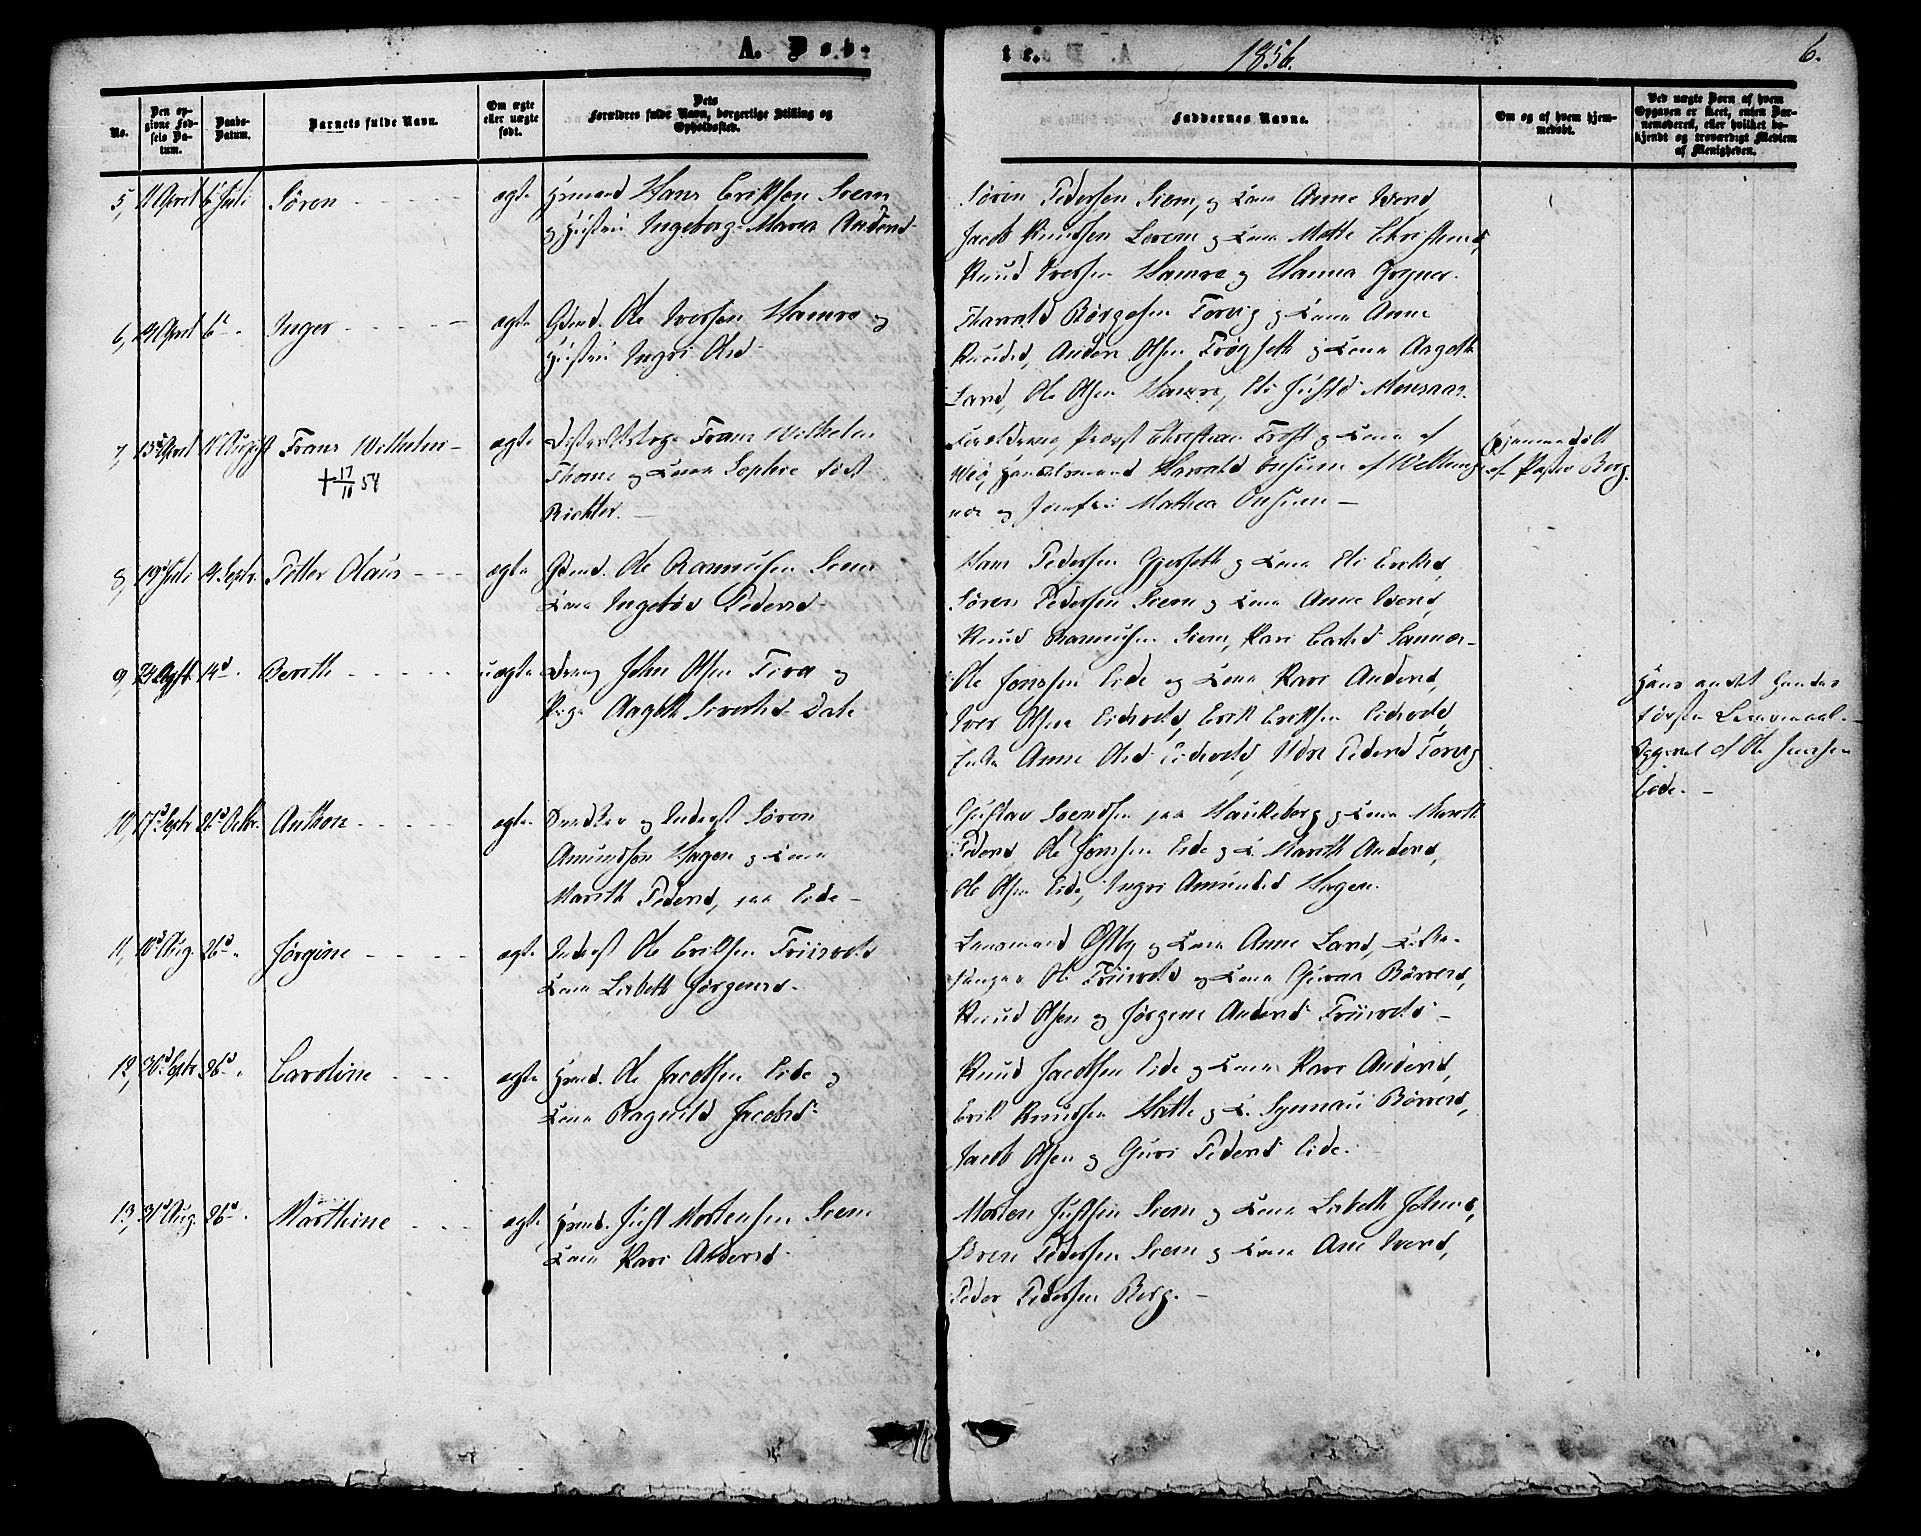 A. Døb-
te.
1856.
6.
No.
Den op-
givne Fød-
sels Da-
tum.
Daabs-
Datum.
Barnets fulde Navn.
Om ægte
eller uægte
født.
Dets
Forældres fulde Navn, borgerlige Stilling og
Opholdssted.
Faddernes Navne.
Om og af hvem hjem-
medøbt.
Ved uægte Børn af hvem
Opgaven er skeet, enten Bar-
nemoderen, eller hvilket be-
kjendt og troværdigt Medlem
af Menigheden.
5, 11 April 6 Juli Søren ægte Hans Eriksen Siem
og Hustru Ingeborg Maria Andersd
Søren Pedersen Siem, og Kone Anne Iversd
Jacob Knudsen og Kone Mette Christensd,
Knud Iversen Hamre og Hanna
6, April 6 Inger ægte Gbmd. Ole Iversen Hamre og
Hustru Ingri Olsd
Tharald Børgesen Torvig og Kone Anne
Knudsd, Anders Olsen Frøyseth og Kone Aagoth
Land, Ole Olsen Hamre,
7, 13 April Frans Wilhelm ægte Frans Wilhelm
+ 17/10 54
Thome og Kone Sophie født
Richter.
Provst Christian Frost og Kone af
Harald Onsum af
og Jomfru Mathea Onsum
Hjemmedøbt
af Pastor Berg.
8, 19 Juli Sept. Petter Olaus ægte Gbmd. Ole Rasmussen Siem
Kone Ingebør Pedersd
Hans Pedersen Gjerseth og Kone Eli Eriksd,
Søren Pedersen Siem og Kone Anne Iversd,
Knud Rasmussen Siem, Kari
9, 24 Agst. 14 Berith uægte Dreng John Olsen Tira og
Pige Aagoth Sivertsd Dale
Ole Jonssen Eide og Kone Kari Andersd,
Iver Olsen Eidsvold, Erik Eriksen Eidsvold,
Enke Anne Olsd Eidsvold, Pedersd Torvig
Hans andet hendes
første Leiermaal.
Opgivet af Ole Jonssen
Eide.
10, 17 Septr 26 Octbr. Anthon ægte Snedker og Inderst Søren
Amundsen Hagen og Kone
Marith Pedersd, paa Eide
Gustav Svendsen paa Haukeberg og Kone Marith
Pedersd, Ole Jonssen Eide og K. Marith Andersd,
Ole Olsen Eide, Ingri Amundsd Hagen.
11, 10 Aug. 26 Jørgine ægte Inderst Ole Eriksen Friisvold
Kone Lisbeth Jørgensd
Lensmand Østby og Kone Anne Land, Kirke-
sanger Ole Friisvold og Kone Børresd,
Knud Olsen og Jørgine Andersd Friisvold
12, 30 Septr 26 Caroline ægte Gbmd. Ole Jacobsen Eide og
Kone Ragnild Jacobsd
Knud Jacobsen Eide og Kone Kari Andersd,
Erik Knudsen Hatle og K. Synnau Børresd,
Jacob Olsen og Guri Pedersd Eide.
13, 31 Aug. 26 Marthine ægte Gbmd. Just Mortensen Siem
Kone Kari Andersd
Morten Justsen Siem og Kone Lisbeth Johnsd,
Søren Pedersen Siem og Kone Ane Iversd,
Peder Pedersen Berg.